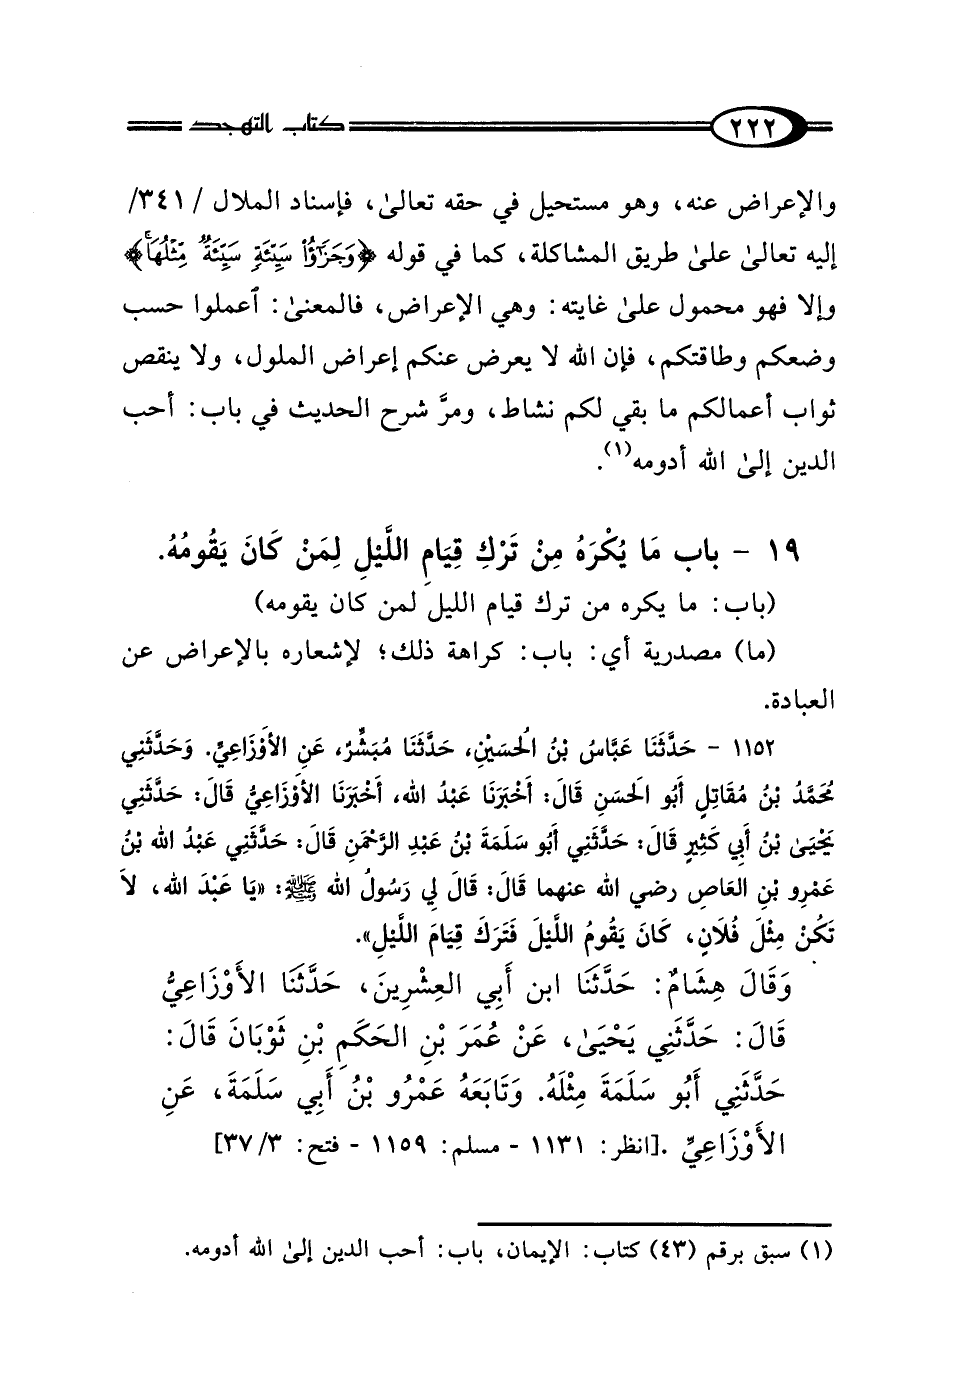 ٢٢٢ كتاب التهجد
والإعراض عنه، وهو مستحيل في حقه تعالىٰ، فإسناد الملال /٣٤١/
إليه تعالىٰ علىٰ طريق المشاكلة، كما في قوله ﴿وَجَزَٰٓؤُا۟ سَيِّئَةٍ سَيِّئَةٌ مِّثْلُهَا ۖ﴾
وإلا فهو محمول علىٰ غايته: وهي الإعراض، فالمعنىٰ: ٱعملوا حسب
وضعكم وطاقتكم، فإن الله لا يعرض عنكم إعراض الملول، ولا ينقص
ثواب أعمالكم ما بقي لكم نشاط، ومرَّ شرح الحديث في باب: أحب
الدين إلىٰ الله أدومه(١).
١٩ - باب مَا يُكْرَهُ مِنْ تَرْكِ قِيَامِ اللَّيْلِ لِمَنْ كَانَ يَقُومُهُ.
(باب: ما يكره من ترك قيام الليل لمن كان يقومه)
(ما) مصدرية أي: باب: كراهة ذلك؛ لإشعاره بالإعراض عن
العبادة.
١١٥٢ - حَدَّثَنَا عَبَّاسُ بْنُ الُحسَيْنِ، حَدَّثَنَا مُبَشِّرٌ، عَنِ الأَوْزَاعِيِّ. وَحَدَّثَنِي
مُحَمَّدُ بْنُ مُقَاتِلٍ أَبُو الَحسَنِ قَالَ: أَخْبَرَنَا عَبْدُ الله، أَخْبَرَنَا الأَوْزَاعِيُّ قَالَ: حَدَّثَنِي
يَحْيَىٰ بْنُ أَبِي كَثِيرٍ قَالَ: حَدَّثَنِي أَبُو سَلَمَةَ بْنُ عَبْدِ الرَّحْمَنِ قَالَ: حَدَّثَنِي عَبْدُ الله بْنُ
عَمْرِو بْنِ العَاصِ رضي الله عنهما قَالَ: قَالَ لِي رَسُولُ الله ﷺ: «يَا عَبْدَ الله، لاَ
تَكُنْ مِثْلَ فُلَانٍ، كَانَ يَقُومُ اللَّيْلَ فَتَرَكَ قِيَامَ اللَّيْلِ».
وَقَالَ هِشَامٌ: حَدَّثَنَا ابن أَبِي العِشْرِينَ، حَدَّثَنَا الأَوْزَاعِيُّ
قَالَ: حَدَّثَنِي يَحْيَىٰ، عَنْ عُمَرَ بْنِ الحَكَمِ بْنِ ثَوْبَانَ قَالَ:
حَدَّثَنِي أَبُو سَلَمَةَ مِثْلَهُ. وَتَابَعَهُ عَمْرُو بْنُ أَبِي سَلَمَةَ، عَنِ
الأَوْزَاعِيِّ .[انظر: ١١٣١ - مسلم: ١١٥٩ - فتح: ٣/ ٣٧]
(١) سبق برقم (٤٣) كتاب: الإيمان، باب: أحب الدين إلىٰ الله أدومه.